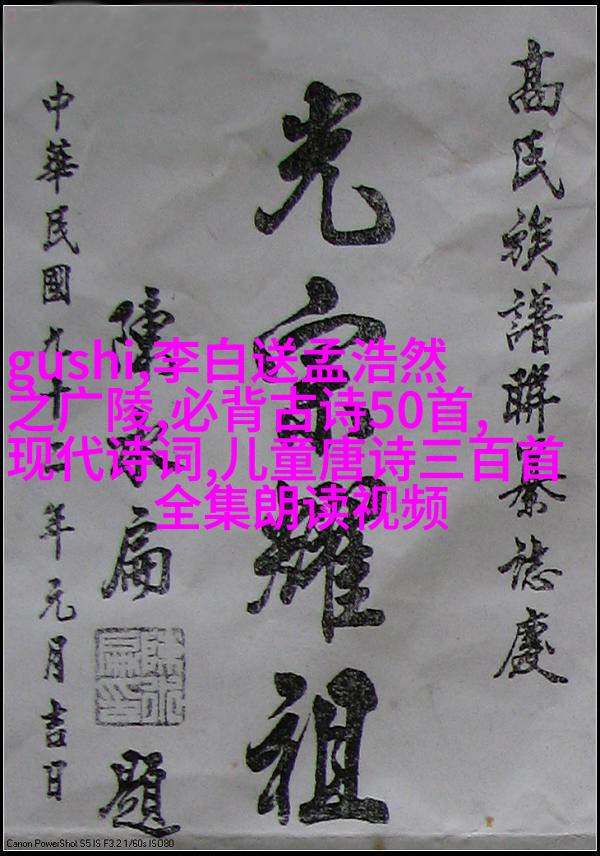 高氏族譜聯系誌慶
光宗耀祖
陳水扁題
陳水扁印
中華民國九十二年元月吉日
gushi,李白送孟浩然
之广陵,必背古诗50首,
现代诗词,儿童唐诗三百首
全集朗读视频
Canon PowerShot S5 IS F3.2 1/60s ISO80